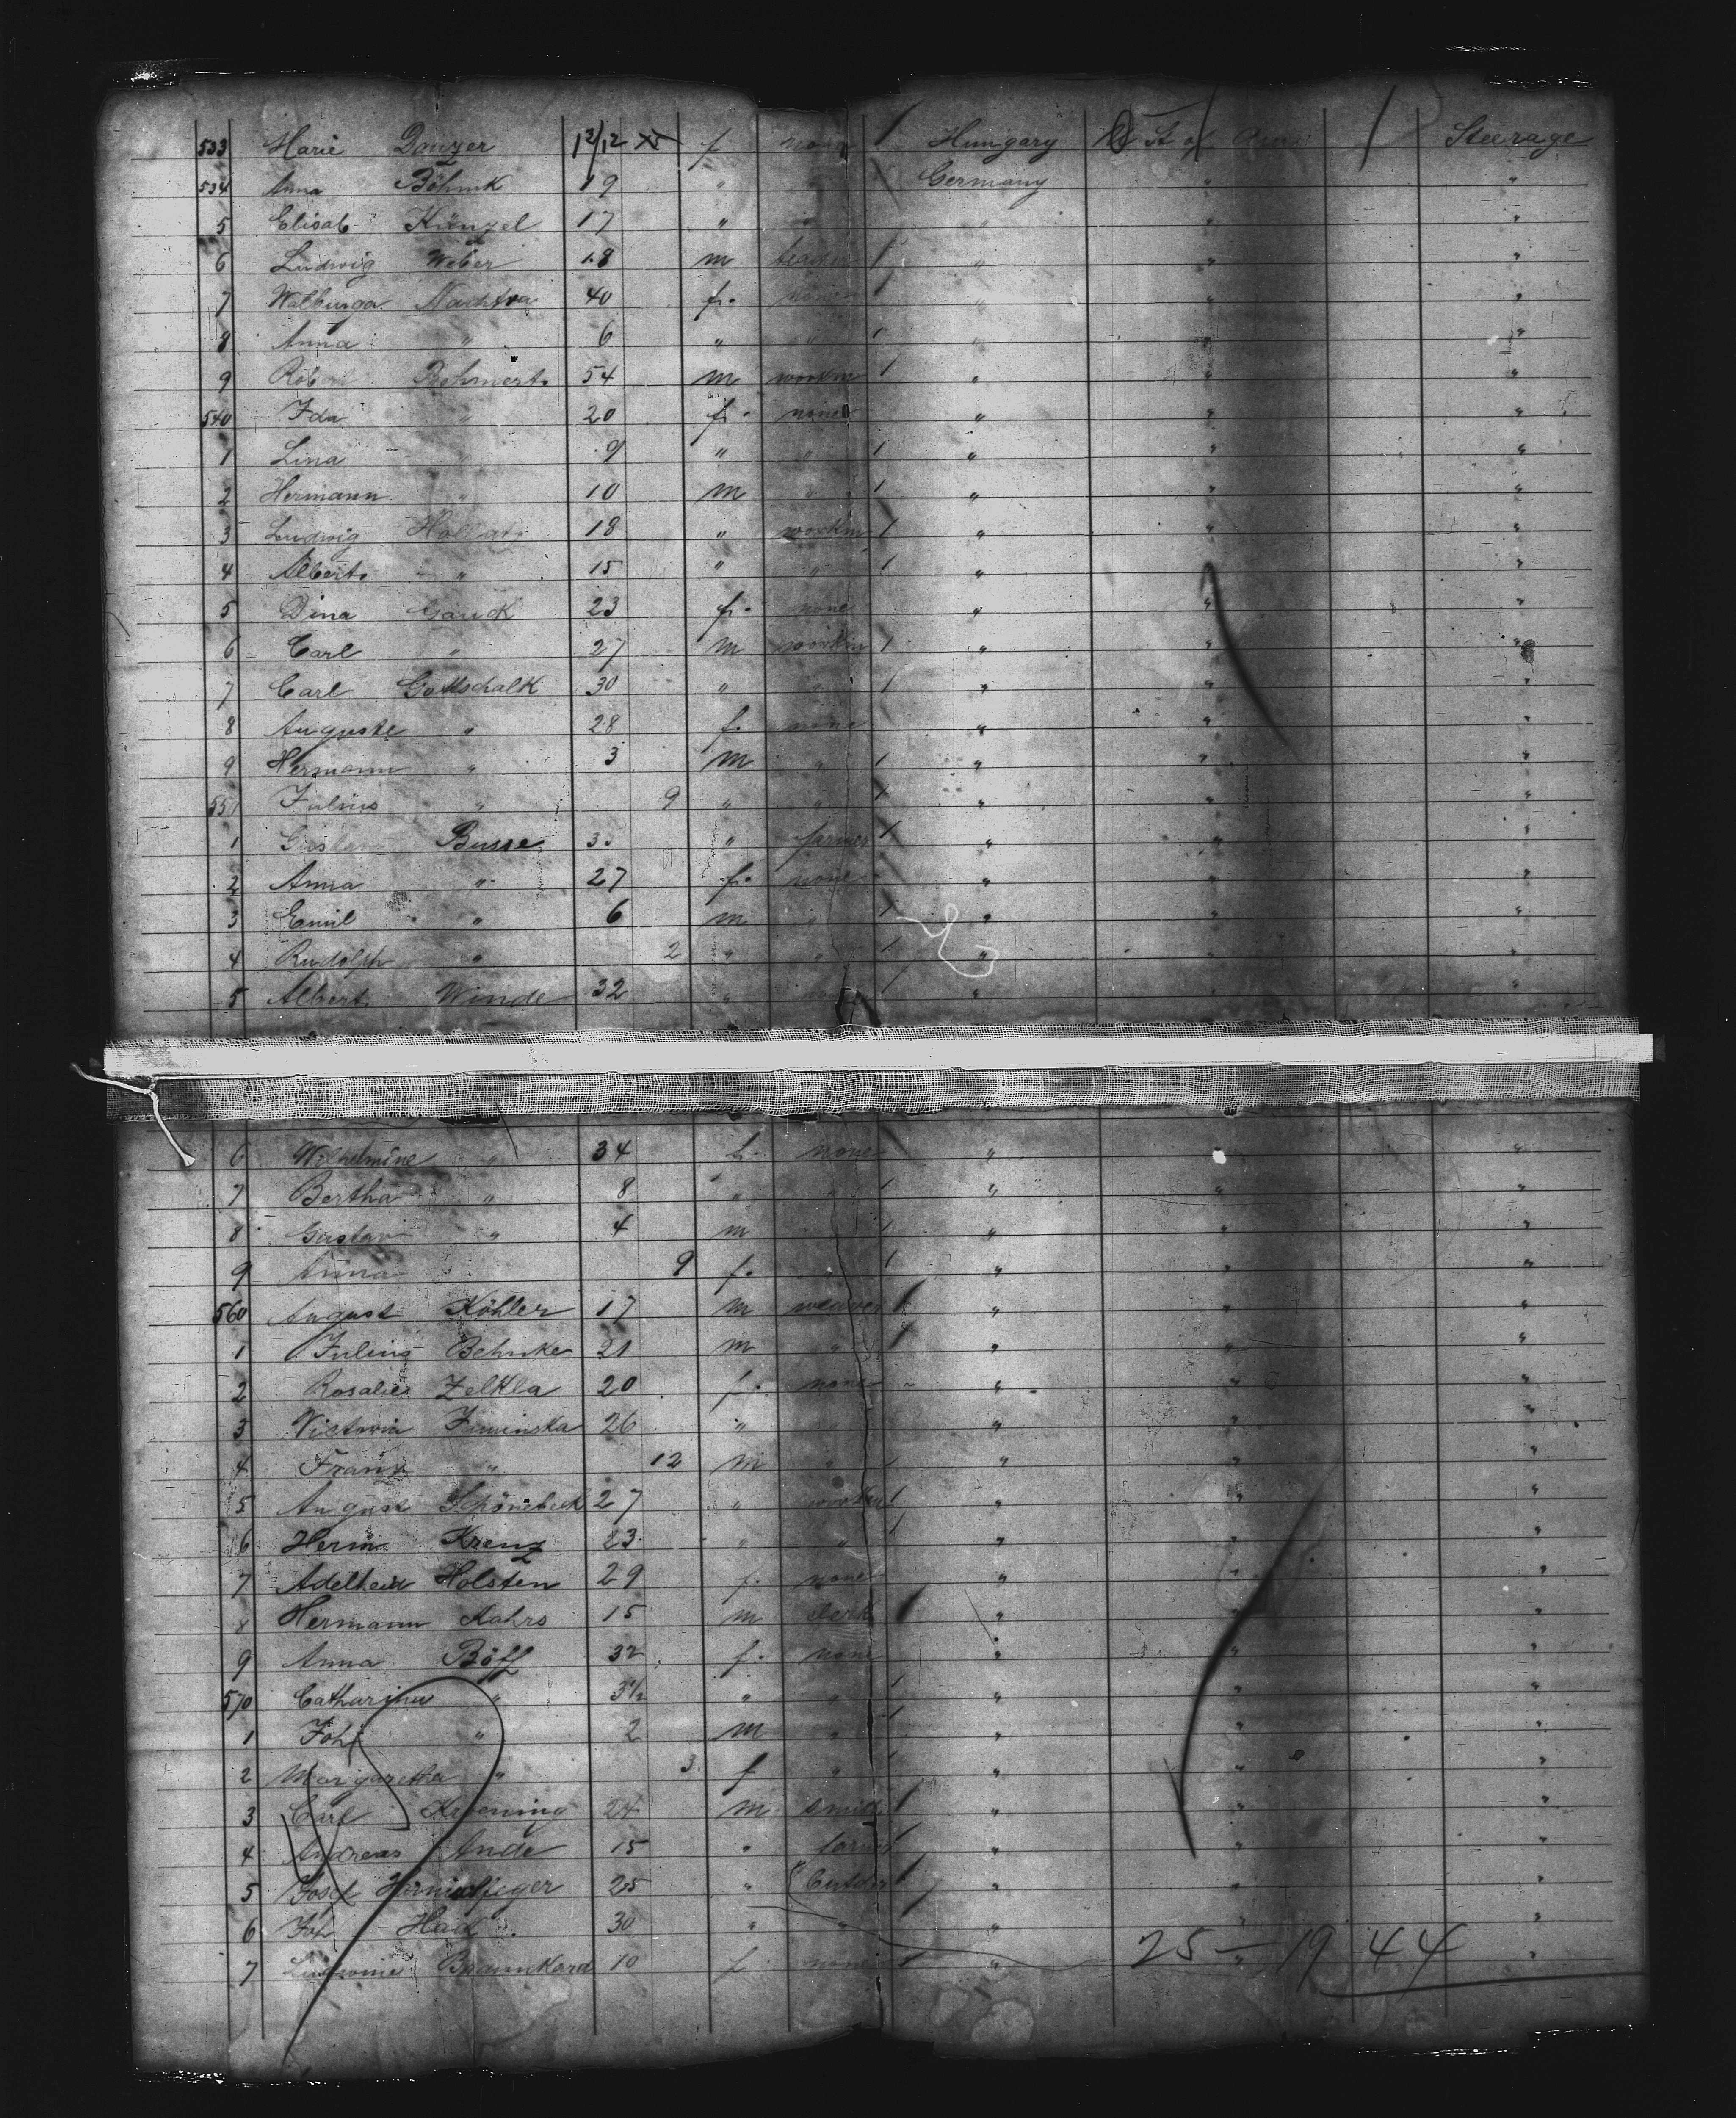 533 Marie Donzer 12/12 f none Hungary U St of Am Steerage
534 Anna Böhmk 19 " " Germany " "
5 Elisab. Künzel 17 " " " " "
6 Ludwig Weber 18 m " " "
7 Walburga 40 f. none " " "
8 Anna " 6 " " " " "
9 Robert Bohmert 54 m workm " " "
540 Ida " 20 f. none " " "
1 Lina 9 " " " " "
2 Hermann " 10 m " " " "
3 Ludwig 18 " workm " " "
4 Albert " 15 " " " " "
5 Dina Gauck 23 f. none " " "
6 Carl " 27 m workm " " "
7 Carl Gottschalk 30 " " " " "
8 Auguste " 28 f. none " " "
9 Hermann " 3 m " " " "
551 Julius " 9 " " " " "
1 Gustav Busse 33 " farmer " " "
2 Anna " 27 f. none " " "
3 Emil " 6 m " " " "
4 Rudolph " 2 " " " " "
5 Albert Winde 32 " " " "
6 Wilhelmine " 34 f. none " " "
7 Bertha " 8 " " " " "
8 Gustav " 4 m " " "
9 Anna 9 f. " " " "
560 August Köhler 17 m weaver " " "
1 Julius Behnke 21 m " " " "
2 Rosalie Zelkla 20 f. none " " "
3 Victoria 26 " " " "
4 Franz " 12 m " " " "
5 August Schönebeck 27 " workm " " "
6 Herm Krenz 23 " " " " "
7 Adelheid Holsten 29 f. none " " "
8 Hermann Kahrs 15 m clerk " " "
9 Anna Böff 32 f. none " " "
570 Catharina " 3½ " " " " "
1 Joh " 2 m " " " "
2 Margaretha " 3 f " " " "
3 Carl Kroening 24 m smith " " "
4 Andreas Ande 15 " farmer " " "
5 Josef 25 " " " "
6 Joh Hack 30 " " " " "
7 Braunkard 10 f none " " "
25 — 19 44